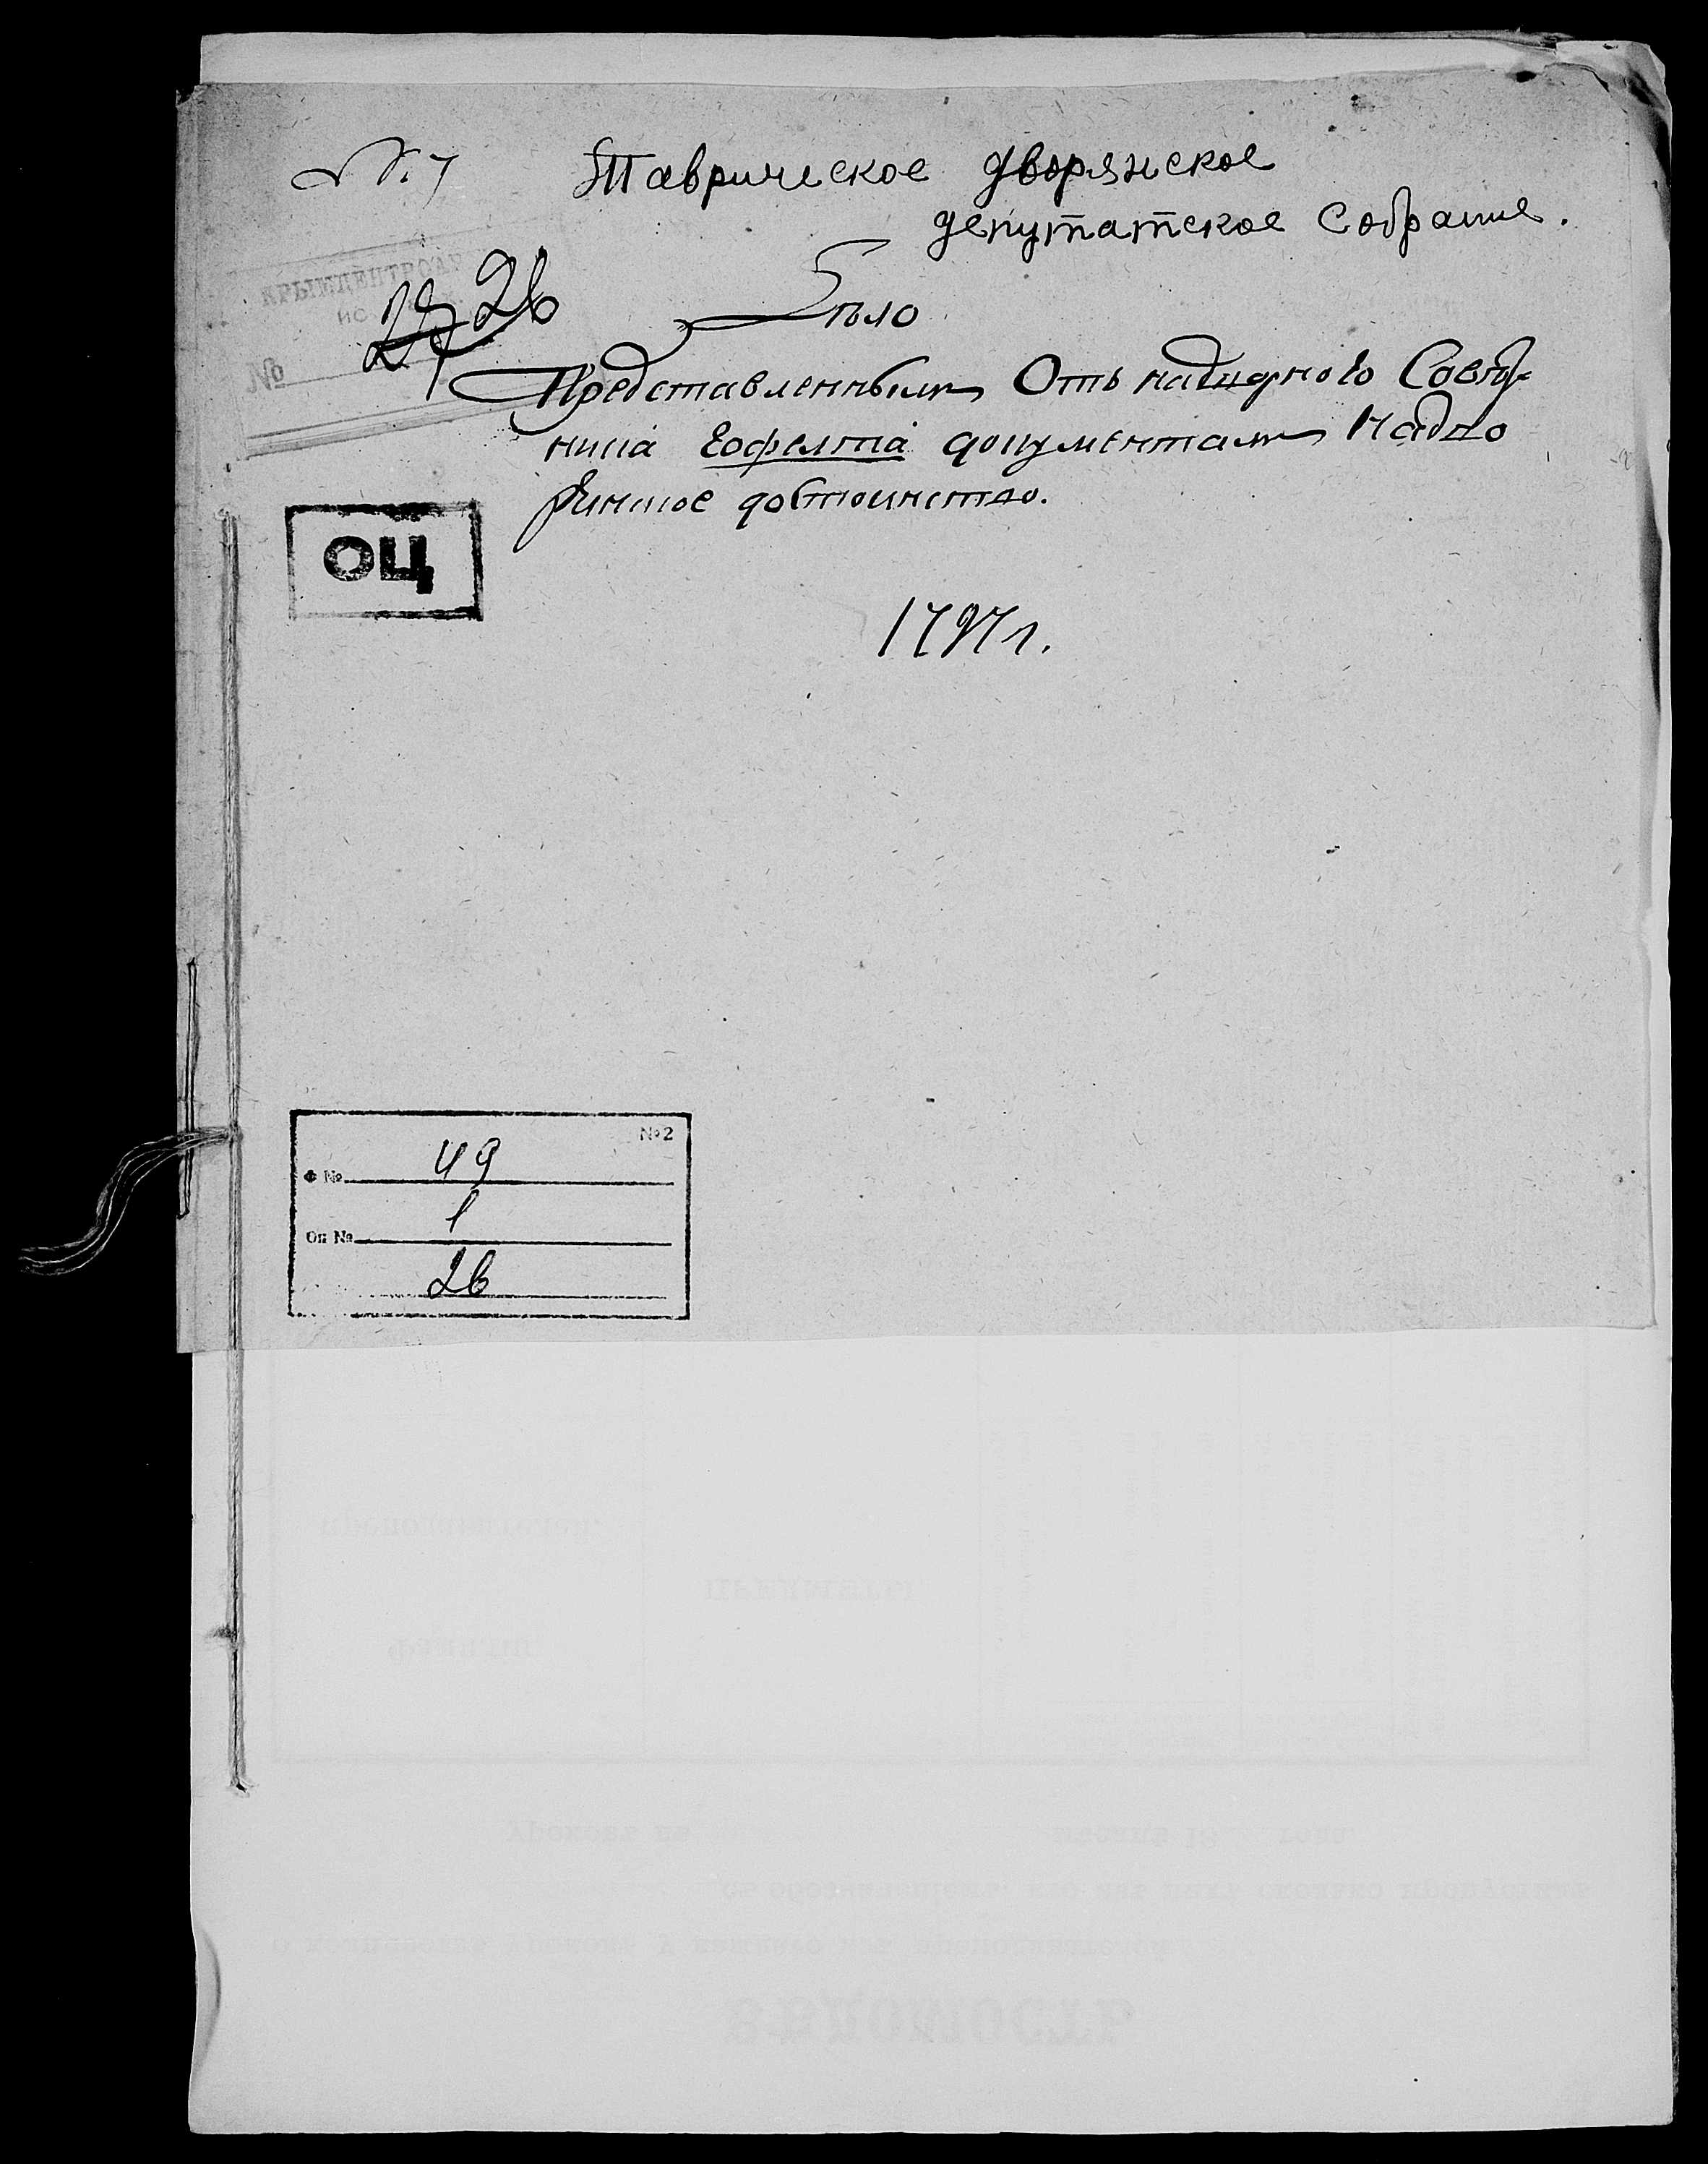 № 7
Таврическое дворянское
депутатское Собрание.
КРЫМЦЕНТРОАР
ИС
№
26
Дѣло
Представленнымъ Отъ надворного Совѣт-
ника Гофелта документамъ На дво
рянское достоинство.
ОЦ
1797 г.
№ 2
Ф № 49
Оп № 1
26